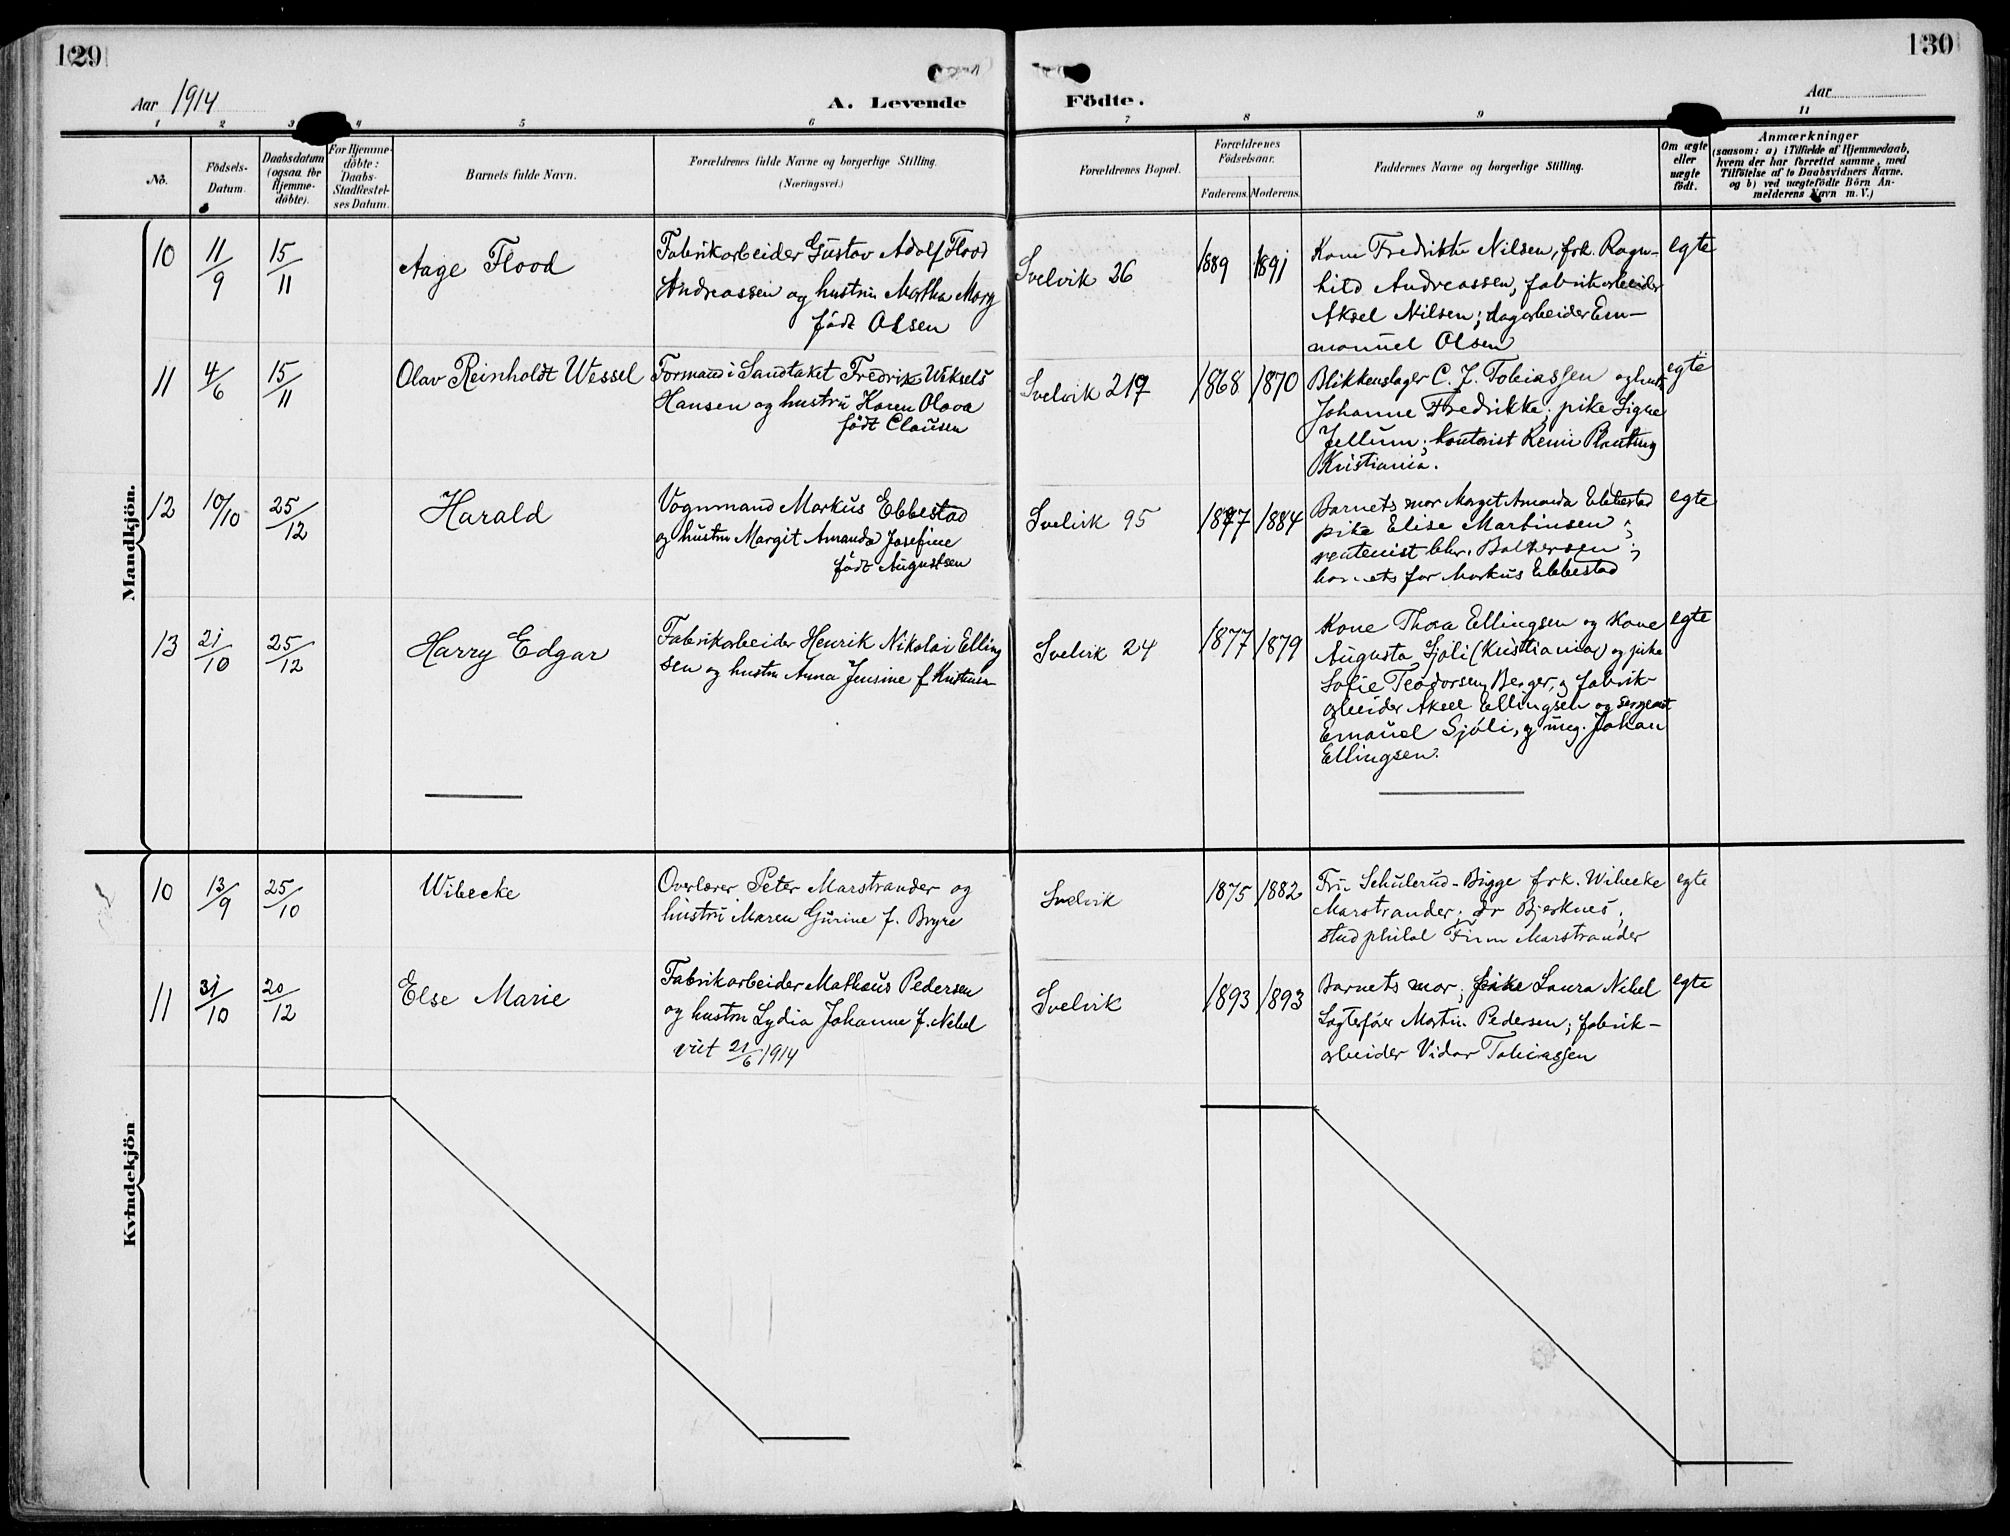 129
130
Aar 1914
A. Levende
Födte.
Aar
1 2 3 4 5 6
7 8 9 11
No.
Födsels-
Datum.
Daabsdatum
(ogsaa for
Hjemme-
döbte).
For Hjemme-
döbte:
Daabs-
Stadfæstel-
ses Datum.
Barnets fulde Navn.
Forældrenes fulde Navne og borgerlige Stilling.
(Næringsvei.)
Forældrenes Bopæl.
Forældrenes
Födselsaar.
Faderens. Moderens.
Faddernes Navne og borgerlige Stilling.
Om ægte
eller
uægte
födt.
Anmærkninger
(saasom: a) i Tilfælde af Hjemmedaab,
hvem der har forrettet samme, med
Tilföielse af to Daabsvidners Navne,
og b) ved uægtefödte Börn An-
melderens Navn m. V.)
Mandkjön.
10
11/9
15/11
Aage Flood
Fabrikarbeider Gustav Adolf Flood
Andreassen og hustru Martha Mary
født Olsen
Svelvik 26
1889
1891
Kone Fredrikke Nilsen, frk. Ragn-
hild Andreassen, fabrikarbeider
Aksel Nilsen; dagarbeider Em-
manuel Olsen
egte
11
4/6
15/11
Olav Reinholdt Wessel
Formand i Sandtaket Fredrik Wiksels
Hansen og hustru Karen Olava
født Clausen
Svelvik 217
1868
1870
Blikkenslager C. J. Tobiassen og hust.
Johanne Fredrikke; pike Signe
Jellum; kontorist
Kristiania.
egte
12
10/10
25/12
Harald
Vognmand Markus Ebbestad
og hustru Margit Amanda Josefine
født Augustsen
Svelvik 95
1877
1884
Barnets mor Margit Amanda Ebbestad
pike Elise Martinsen;
Baltersen;
barnets far Markus Ebbestad
egte
13
21/10
25/12
Harry Edgar
Fabrikarbeider Henrik Nikolai Elling
sen og hustru Anna Jensine f. Kristiansen
Svelvik 24
1877
1879
Kone Thora Ellingsen og Kone
Augusta Sjøli (Kristiania) og pike
Sofie Teodorsen, Berger, og fabrik-
arbeider Aksel Ellingsen og sergeant
Emanuel Sjøli, og ung. Johan
Ellingsen.
egte
Kvindekjön
10
13/9
25/10
Wibecke
Overlærer Peter Marstrander og
hustru Maren Gurine f. Bryre
Svelvik
1875
1882
Fru Schulerud-Bugge frk. Wibecke
Marstrander; dr Bjerknes;
stud philol Finn Marstrander
egte
11
31/10
20/12
Else Marie
Fabrikarbeider Mathæus Pedersen
og hustru Lydia Johanne f. Nebel
viet 21/6 1914
Svelvik
1893
1893
Barnets mor; pike Laura Nebel
Martin Pedersen; fabrik-
arbeider Vidar Tobiassen
egte